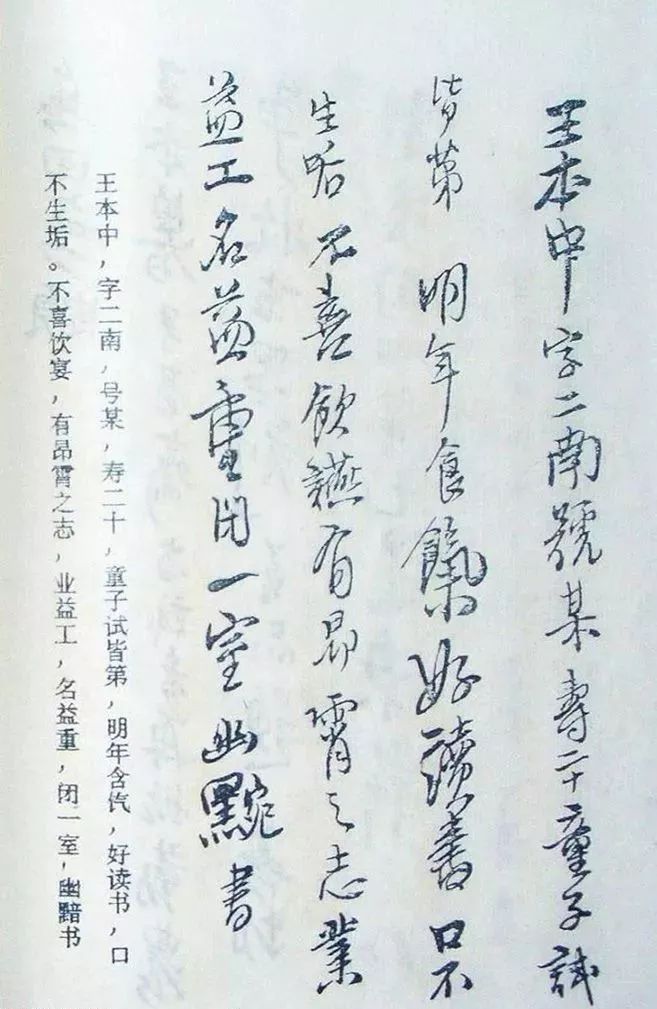 王本中字二南號某壽二十童子試
皆第 明年食餼好讀書口不
生垢不喜飲讌有昂霄之志業
益工名益重閉一室幽黦書
王本中，字二南，号某，寿二十，童子试皆第，明年含饩，好读书，口
不生垢。不喜饮宴，有昂霄之志，业益工，名益重，闭一室，幽黯书